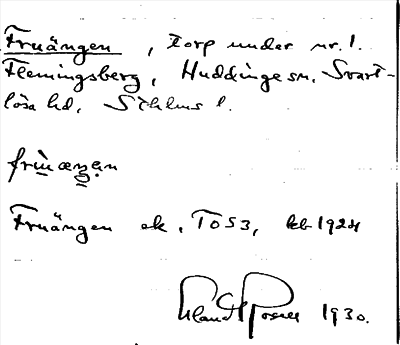 Fruängen, torp under nr. 1.
Flemingsberg, Huddinge sn, Svart-
lösa hd, Sthlms l.
Fruängen ek. T053, kb 1924
Erland Rosell 1930.